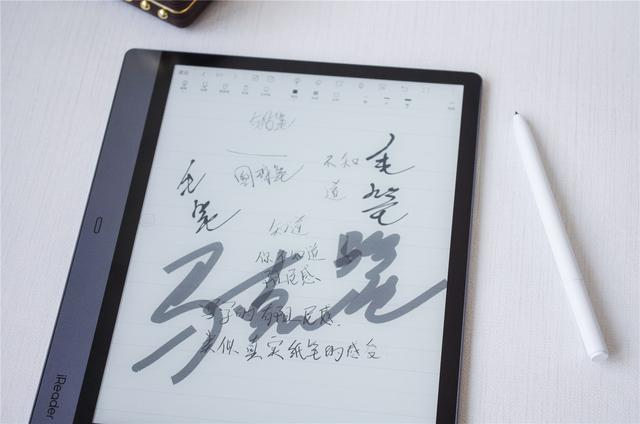 铅笔
圆珠笔
不知道
毛笔
毛笔
知道
你知道
阻尼感
马克笔
写字的有阻尼感.
类似真实纸笔的感受
iReader